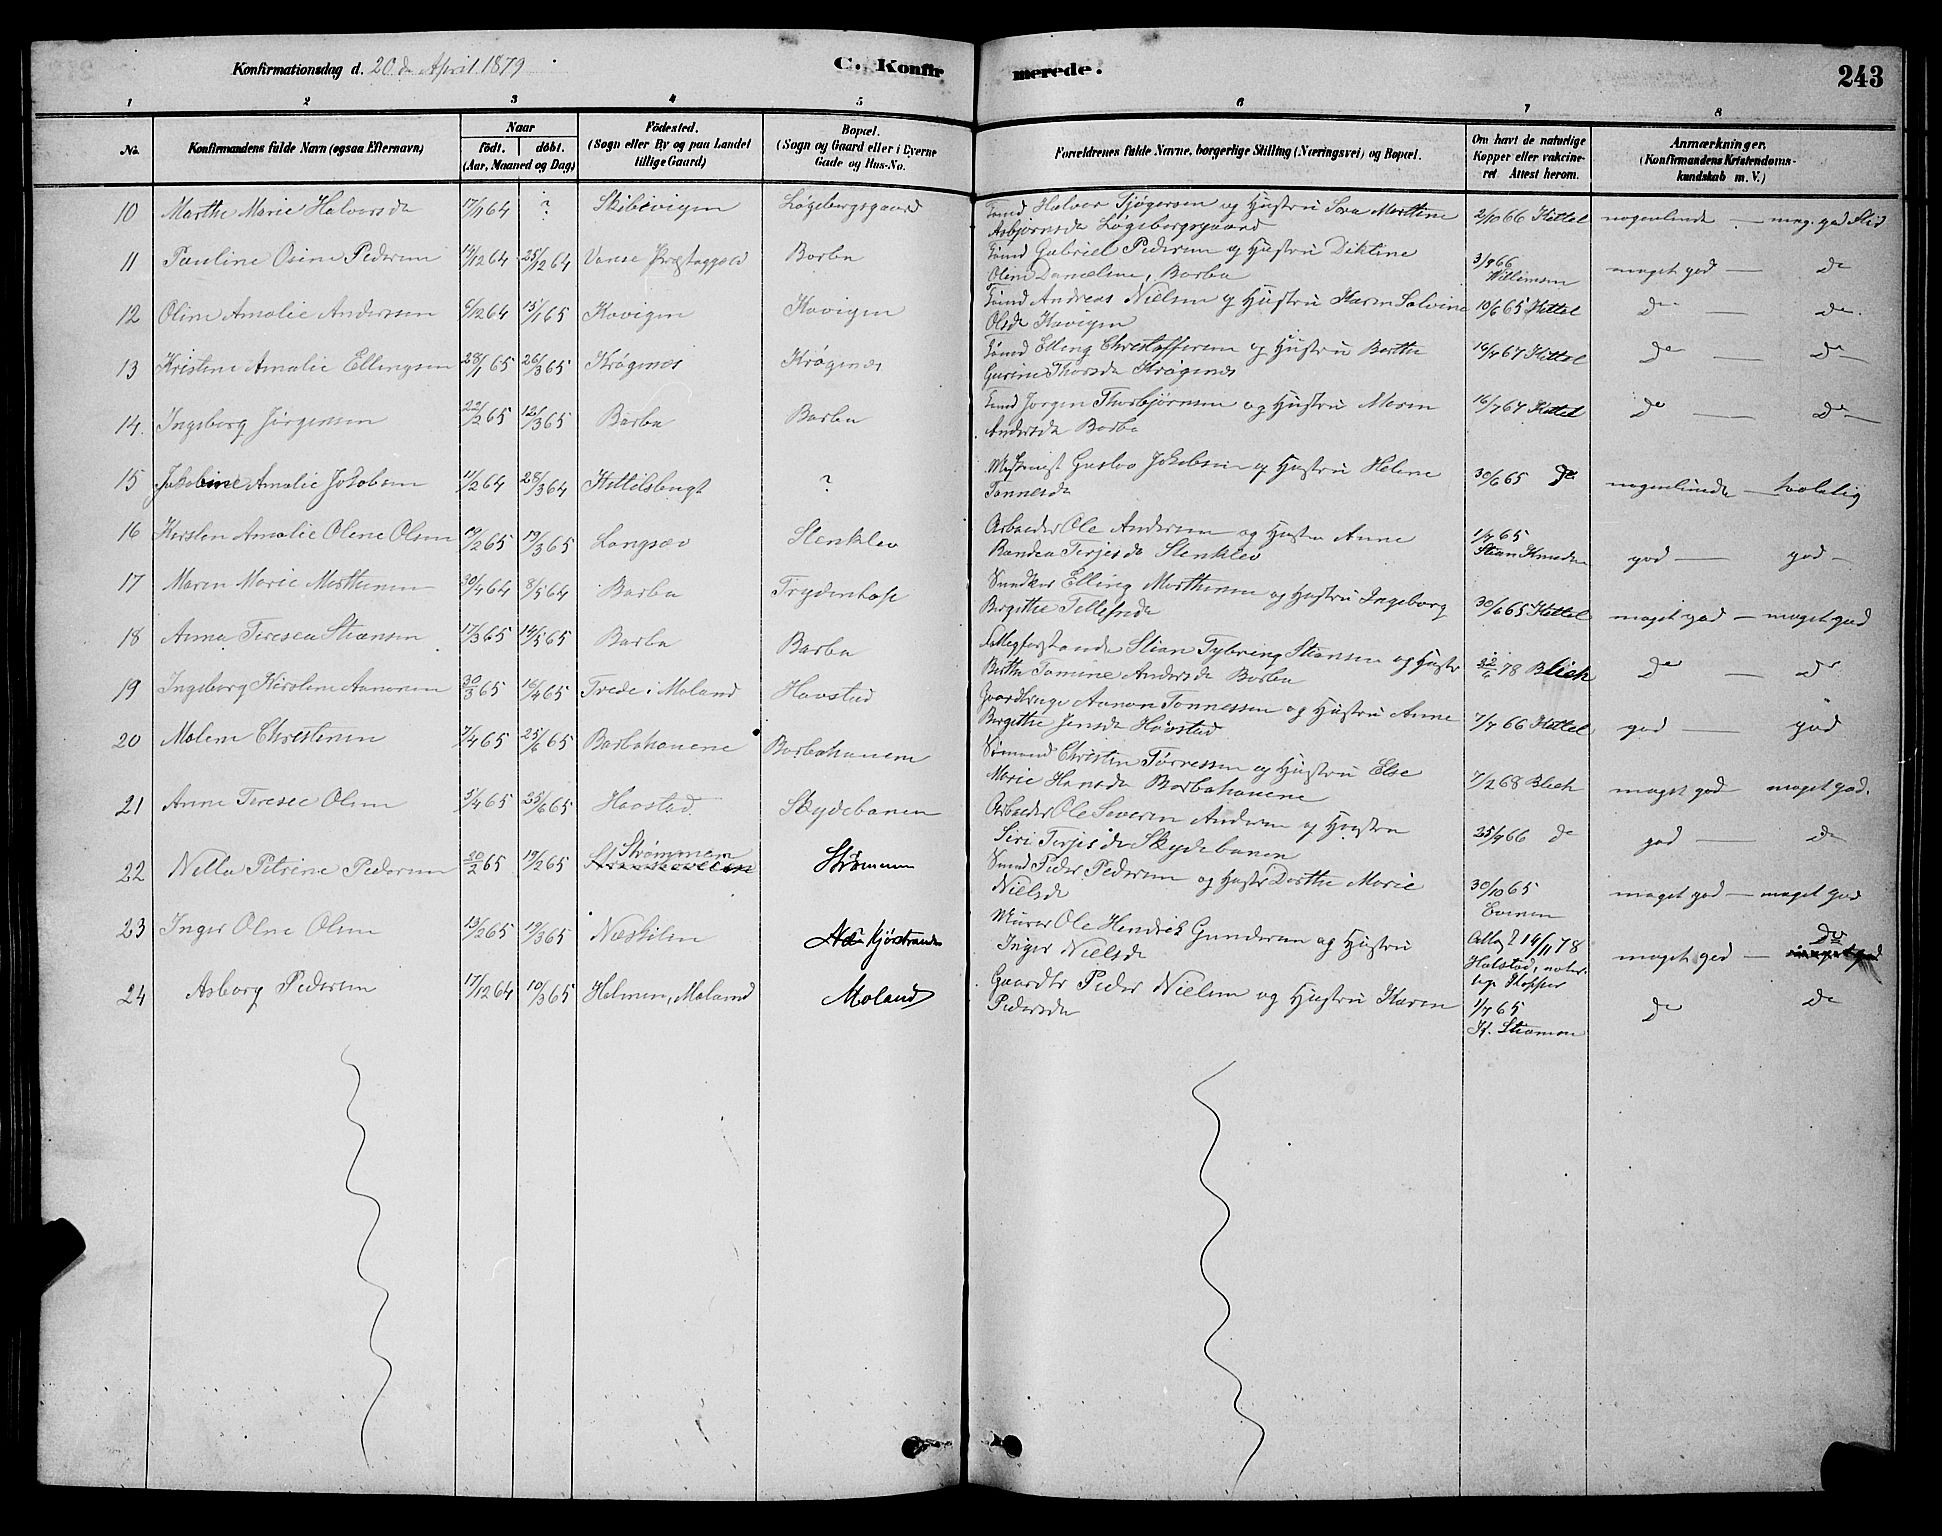 Konfirmationsdag d. 20de April 1879
C. Konfir merede.
243
1 2 3 4 5 6 7 8
No. Konfirmandens fulde Navn (ogsaa Efternavn) Naar födt. döbt. (Aar, Maaned og Dag) Födested. (Sogn eller By og paa Landet tillige Gaard) Bopæl. (Sogn og Gaard eller i Byerne Gade og Hus-No. Forældrenes fulde Navne, borgerlige Stilling (Næringsvei) og Bopæl. Om havt de naturlige Kopper eller vakcineret. Attest herom. Anmærkninger. (Konfirmandens Kristendomskundskab m. V.)
10 Marthe Marie Halvorsda 17/1 64 ? Skibevigen Løgebergsgaard
Halvor Tjøgersen og Hustru Sara Marthine Asbjørnsda Løgebergsgaard 2/10 66 Kittel nogenlunde — meg. god Flid
11 Pauline Osine Pedersen 14/12 64 25/12 64 Vanse Præstegjeld Barbu
Gabriel Pedersen og Hustru Diktine Oline Danieline, Barbu 3/9 66 Willemsen meget god — do
12 Oline Amalie Andersen 6/12 64 15/1 65 Kovigen Kovigen
Andreas Nielsen og Hustru Karen Salvine Olsda Kovigen 10/6 65 Kittel do do
13 Kristine Amalie Ellingsen 28/1 65 26/3 65 Krøgenes Krøgenes
Elling Christoffersen og Hustru Berthe Gurine Thorsda Krøgenes 16/7 67 Kittel do — do
14. Ingeborg Jørgensen 22/2 65 12/3 65 Barbu Barbu
Jørgen Thorbjørnsen og Hustru Maren Andersda Barbu 16/7 67 Kittel do — do
15 Jakobine Amalie Jakobsen 11/2 64 28/3 64 Kittelsbugt ?
Gustav Jakobsen og Hustru Helene Tønnesda 30/6 65 do nogenlunde — taalelig
16 Kirsten Amalie Olene Olsen 19/2 65 19/3 65 Langsæv Stenklev
Arbeider Ole Andersen og Hustru Anne Terjesda Stenklev 1/7 65 Stian Knudsen god — god
17 Maren Marie Marthinsen 30/4 64 8/5 64 Barbu
Elling Marthinsen og Hustru Ingeborg Birgithe Tellefsda 30/6 65 Kittel meget god — meget god
18 Anna Teresea Stiansen 17/3 65 14/5 65 Barbu Barbu
Stian Tybring Stiansen og Hustr Berthe Tomine Andersda Barbu 78 Blich do — do
19 Ingeborg Kirstine Aanonsen 30/3 65 16/4 65 Trede i Moland Havstad
Gaardbruger Aanon Tønnessen og Hustru Anne Birgithe Jensda Havstad 7/7 66 Kittel god — god
20 Malene Christensen 7/4 65 25/6 65 Barbuhauene Barbuhauene
Sømand Christen Tørressen og Hustru Else Marie Hansda Barbuhauene 7/2 68 Blich meget god — meget god.
21 Anne Terese Olsen 5/4 65 25/6 65 Havstad Skydebanen
Arbeider Ole Severin Andersen og Hustru Siri Terjesda Skydebanen 25/9 66 do god — do
22 Nella Petrine Pedersen 20/2 65 19/2 65 Strømmen Strømmen
Peder Pedersen og Hustr Dorthe Marie Nielsda 30/10 65 Evensen meget god — meget god
23 Inger Olne Olsen 13/2 65 19/3 65 Næskilen
Murer Ole Hendrik Gundersen og Hustru Inger Nielsda 14/11 78 Halstad, naturlige Kopper meget god — do
24 Asborg Pedersen 17/12 64 10/3 65 Holmen, Moland Moland
Gaardbr Peder Nielsen og Hustru Karen Pedersda 1/7 65 K. Stiansen do do